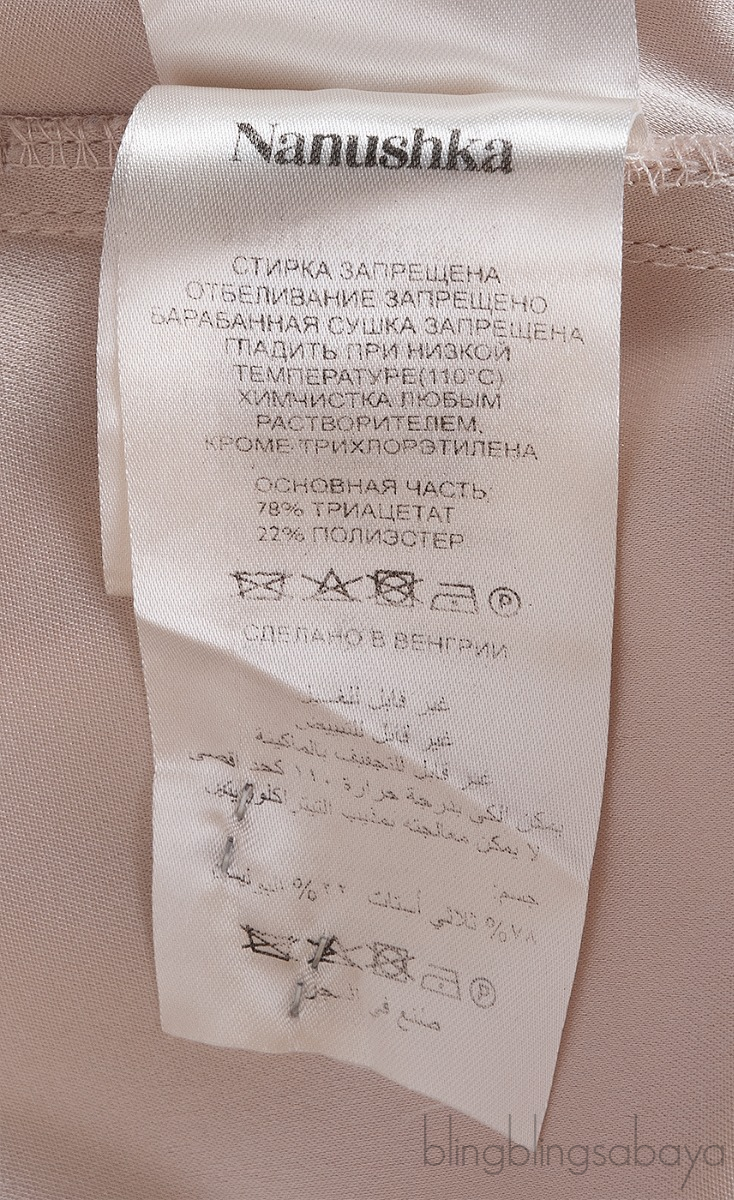 Nanushka
СТИРКА ЗАПРЕЩЕНА
ОТБЕЛИВАНИЕ ЗАПРЕЩЕНО
БАРАБАННАЯ СУШКА ЗАПРЕЩЕНА
ГЛАДИТЬ ПРИ НИЗКОЙ
ТЕМПЕРАТУРЕ(110°C)
ХИМЧИСТКА ЛЮБЫМ
РАСТВОРИТЕЛЕМ,
КРОМЕ ТРИХЛОРЭТИЛЕНА
ОСНОВНАЯ ЧАСТЬ:
78% ТРИАЦЕТАТ
22% ПОЛИЭСТЕР
P
СДЕЛАНО В ВЕНГРИИ
غير قابل للغسل
غير قابل للتبييض
غير قابل للتجفيف بالماكينة
يمكن الكي بدرجة حرارة ١١٠ كحد اقصى
لا يمكن معالجته بمذيب التيتراكلورو
جسم:
٧٨% ثلاثي أستات ٢٢%
P
صنع في المجر
blingblingsabaya